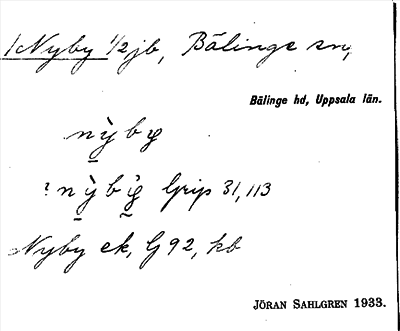 Nyby 1/2 jb, Bälinge sn,
Bälinge hd, Uppsala län.
nỳbφ
: nỳbφ̀ Grip 31, 113
Nyby ek, G 92, kb
JÖRAN SAHLGREN 1933.